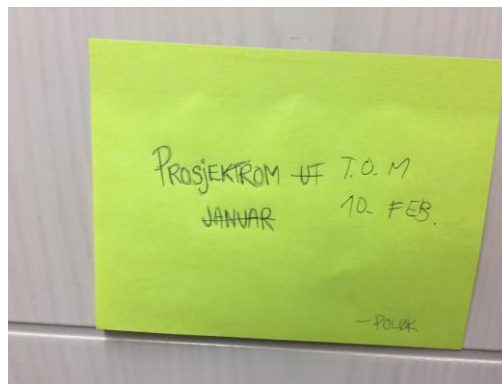 PROSJEKTROM UT T.O.M
JANUAR 10. FEB.
-POLØK